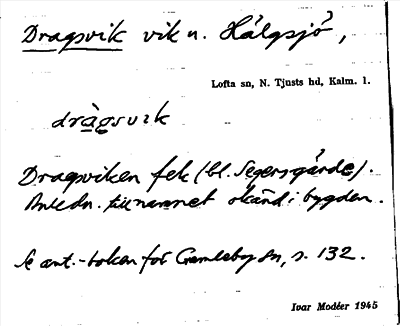 Dragsvik vik n. Hålgsjö,
Lofta sn, N. Tjusts hd, Kalm. l.
dràgsvik
Dragsviken fek (bl. Segersgärde).
Anledn. till namnet okänd i bygden.
Se ant.-boken för Gamleby sn, s. 132.
Ivar Modéer 1945